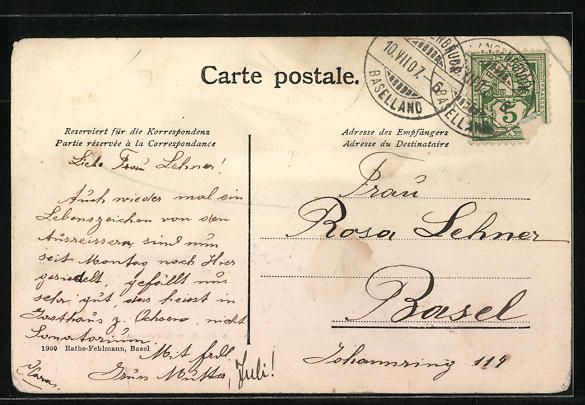 Carte postale.
LANGENBRUCK
10.VII.07.
BASELLAND
5
Reserviert für die Korrespondenz
Partie réservée à la Correspondance
Adresse des Empfängers
Adresse du Destinataire
Liebe Frau Lehner!
Auch wieder mal ein
Lebenszeichen von den
Ausreissern, sind nun
seit Montag nach Hier
gesiedelt, gefällt uns
sehr gut, das heisst in
Gasthaus z. Ochsen, nicht
Sanatorium.
Mit frdl.
Frau
Rosa Lehner
Basel
Johannring 114
1900 Rathe-Fehlmann, Basel